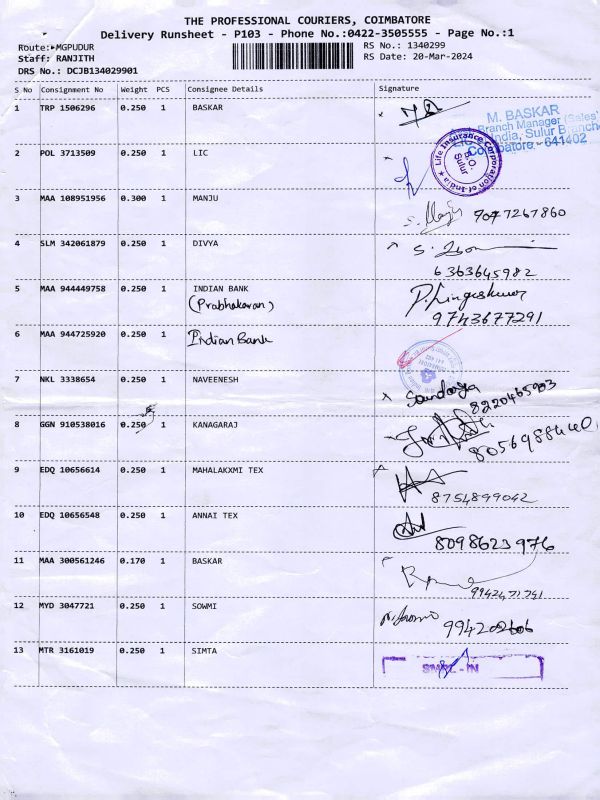 THE PROFESSIONAL COURIERS, COIMBATORE
Delivery Runsheet - P103 - Phone No.:0422-3505555 - Page No.:1
Route: MGPUDUR RS No.: 1340299
Staff: RANJITH RS Date: 20-Mar-2024
DRS No.: DCJB134029901
S No Consignment No Weight PCS Consignee Details Signature
1 TRP 1506296 0.250 1 BASKAR
M. BASKAR
Branch Manager (Sales)
India, Sulur Branch
Coimbatore - 641402
2 POL 3713509 0.250 1 LIC
Life Insurance Corporation of India
B.O.
Sulur
3 MAA 108951956 0.300 1 MANJU 9047267860
4 SLM 342061879 0.250 1 DIVYA
6363645982
5 MAA 944449758 0.250 1 INDIAN BANK
(Prabhakaran) 9743677291
6 MAA 944725920 0.250 1 Indian Bank
7 NKL 3338654 0.250 1 NAVEENESH Soundarya
8220465903
8 GGN 910538016 0.250 1 KANAGARAJ 8056988440
9 EDQ 10656614 0.250 1 MAHALAKXMI TEX
8754899042
10 EDQ 10656548 0.250 1 ANNAI TEX
8098623976
11 MAA 300561246 0.170 1 BASKAR
9942471741
12 MYD 3047721 0.250 1 SOWMI
13 MTR 3161019 0.250 1 SIMTA